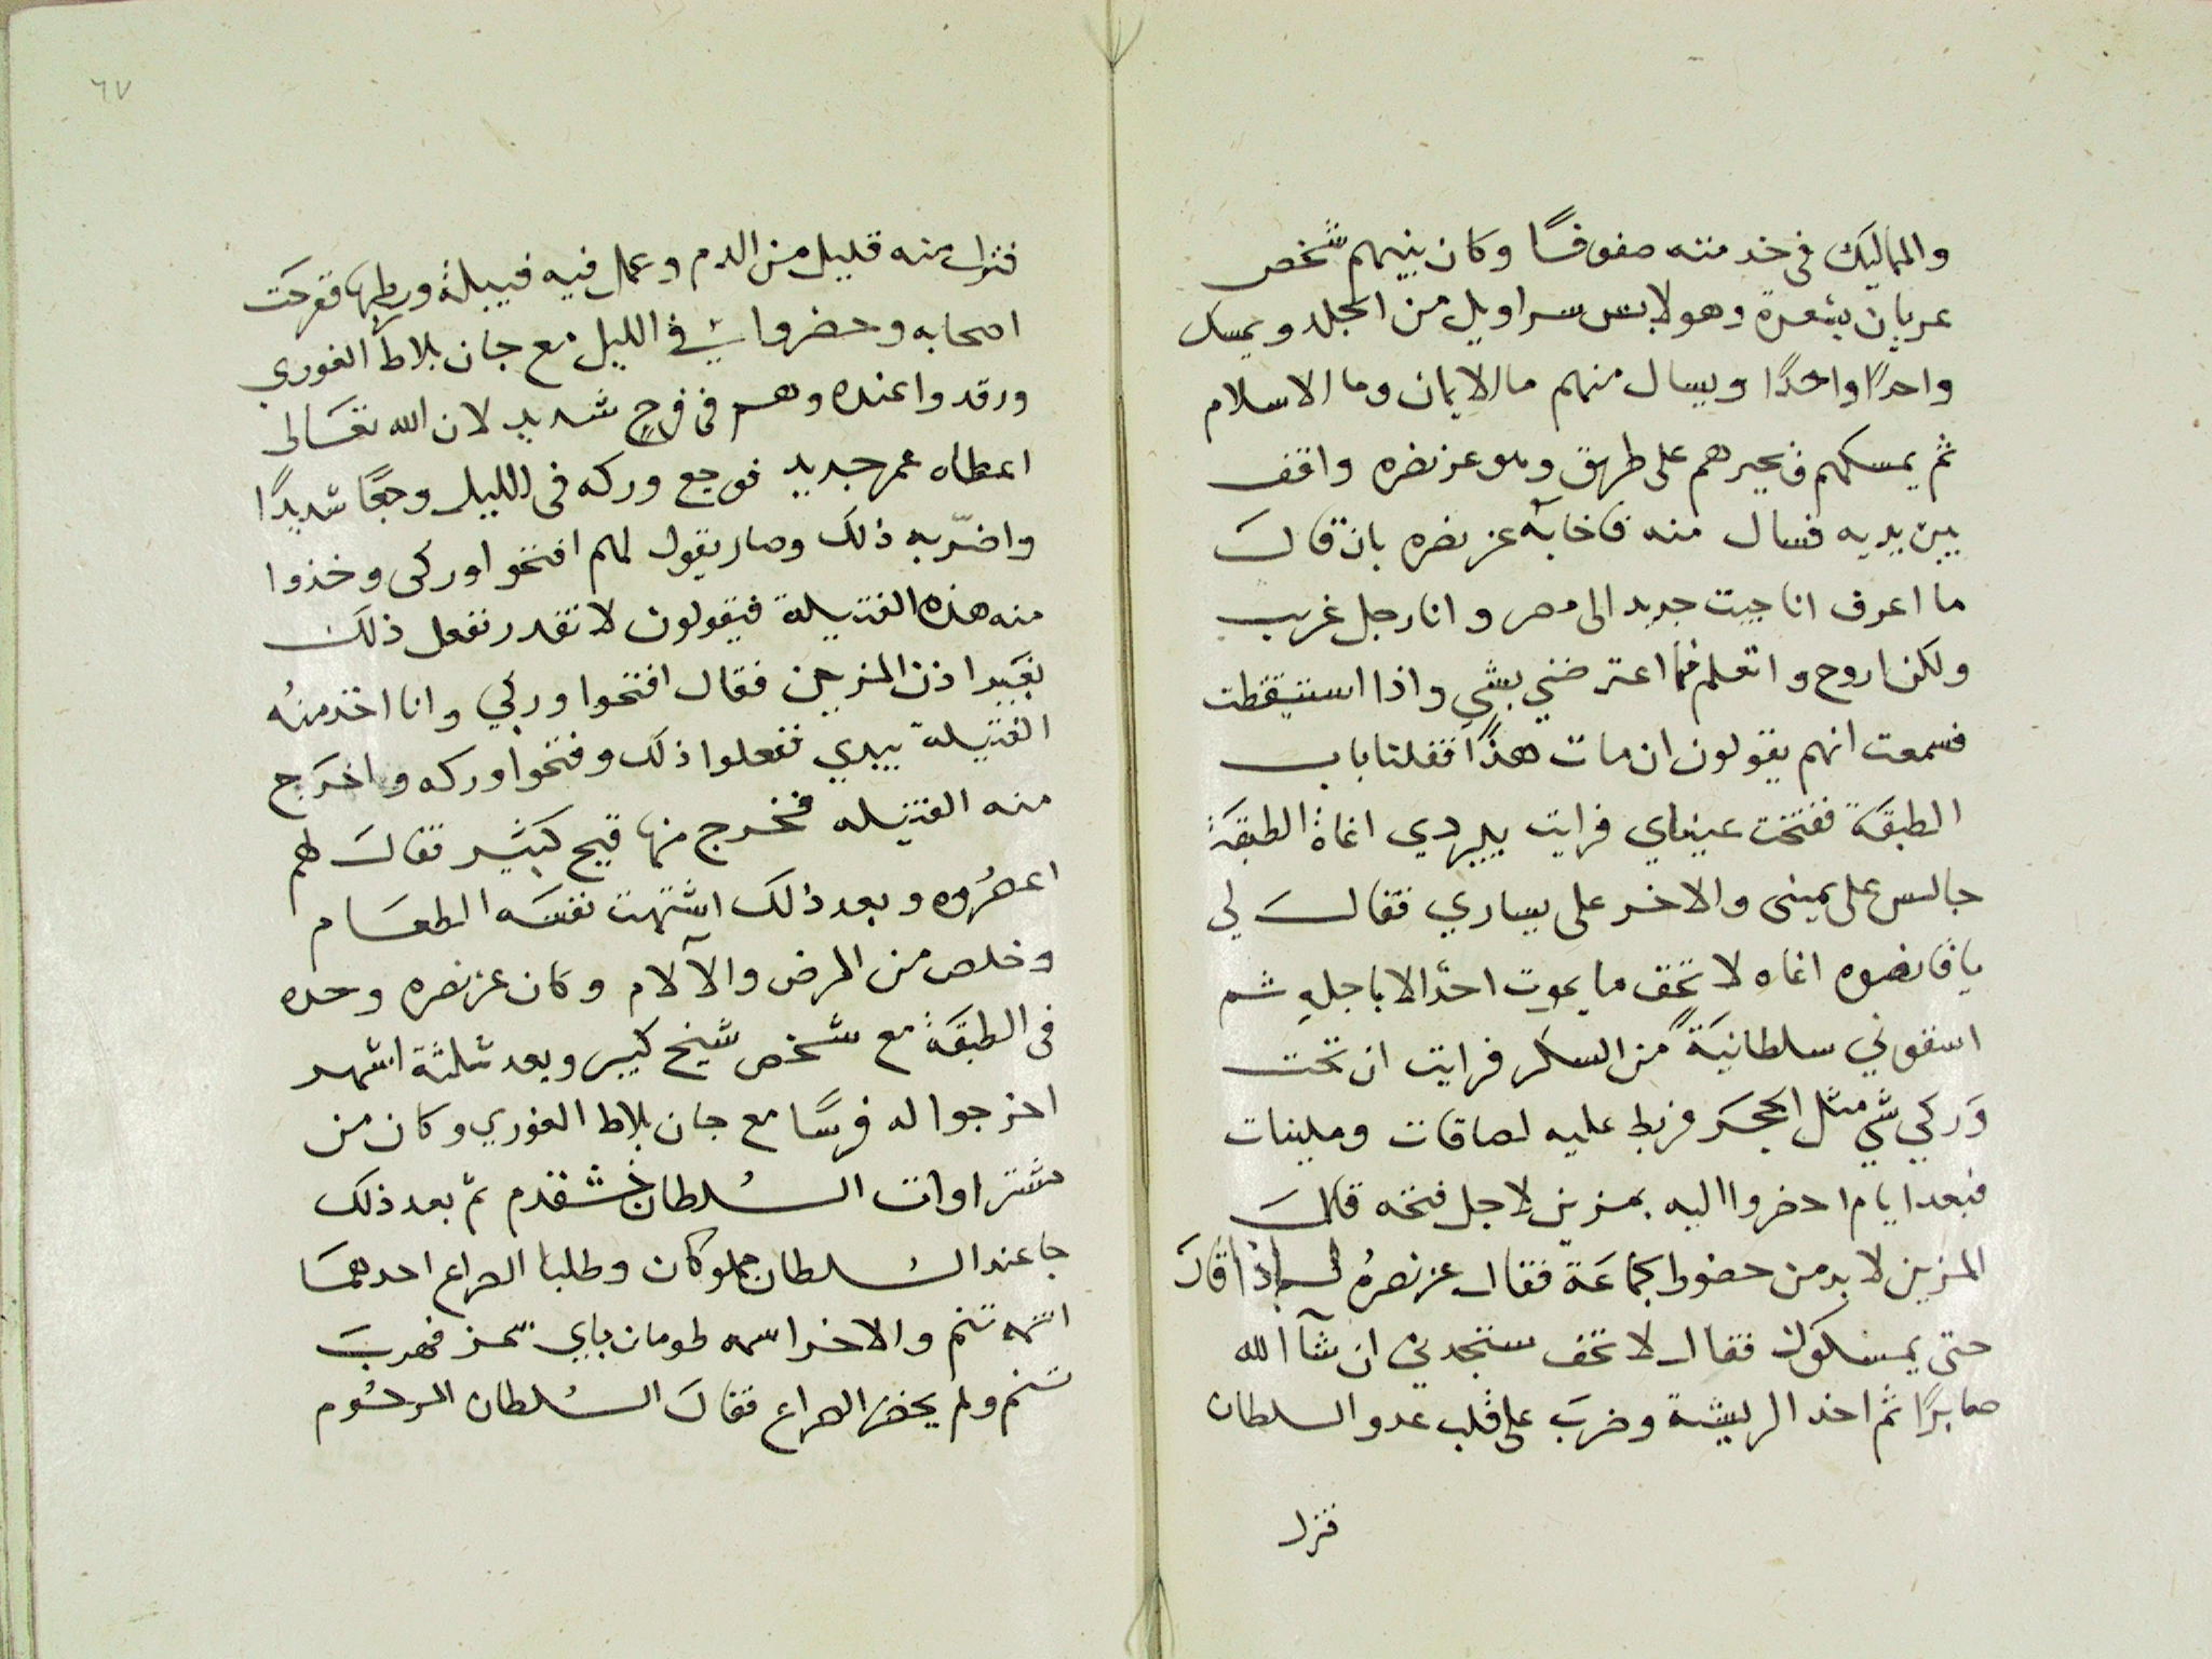 والمماليك فى خدمته صفوفـًا وكان بينهم شخص
عريان بشعرة وهو لابس سراويل من الجلد ويمسك
واحدًا واحدًا ويسال منهم ما الايمان وما الاسلام
ثم يمسكهم فيجيرهم على طريق وهو عز نصره واقف
بين يديه فسال منه فاخابه عز نصره بان قال
ما اعرف انا جيت جديد الى مصر وانا رجل غريب
ولكن اروح واتعلم فما اعترضني بشي واذا استيقظت
فسمعت انهم يقولون ان مات هذا قفلنا باب
الطبقة ففتحت عيناي فرايت بيبردي اغاة الطبقة
جالس على يمينى والاخر على يساري فقال لي
يا قانصوه اغاه لا تخف ما يموت احدًا الا باجله ثم
اسقوني سلطانية من السكر فرايت ان تحت
وركي شي مثل الحجر فربط عليه لصاقات ومليـنات
فبعد ايام احضروا اليه بمزين لاجل فتحه قال
المزين لا بد من حضور الجماعة فقال عز نصره لم اذا قال
حتى يمسكوك فقال لا تخف ستجدني ان شآ الله
صابرًا ثم اخذ الريشة وضرب على قلب عدو السلطان
فنزل
٦٧
فنزل منه قليل من الدم وعمل فيه فتيلة وربطها ففرحت
اصحابه وحضروا في الليل مع جان بلاط الغوري
ورقدوا عنده وهم فى فرح شديد لان الله تعالى
اعطاه عمر جديد فوجع وركه فى الليل وجعًا شديدًا
واضرّ به ذلك وصار يقول لهم افتحوا وركى وخذوا
منه هذه الفتيلة فيقولون لا نقدر نفعل ذلك
بغير اذن المزين فقال افتحوا وركي وانا اخذ منه
الفتيلة بيدي ففعلوا ذلك وفتحوا وركه واخرج
منه الفتيله فخرج منها قيح كثير فقال لهم
اعصروه وبعد ذلك اشتهت نفسه الطعام
وخلص من المرض والآلام وكان عز نصره وحده
فى الطبقة مع شخص شيخ كبير وبعد ثلثة اشهر
اخرجوا له فرسًا مع جان بلاط الغوري وكان من
مشتراوات السلطان خشقدم ثم بعد ذلك
جا عند السلطان مملوكان وطلبا الصراع احدهما
اسمه تنم والاخر اسمه طومان باي فهرب
تنم ولم يحضر الصراع فقال السلطان المرحوم